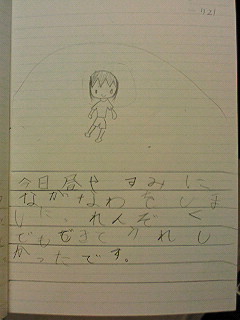 今日昼やすみに
ながなわをしま
した、れんぞく
でもできてうれし
かったです。